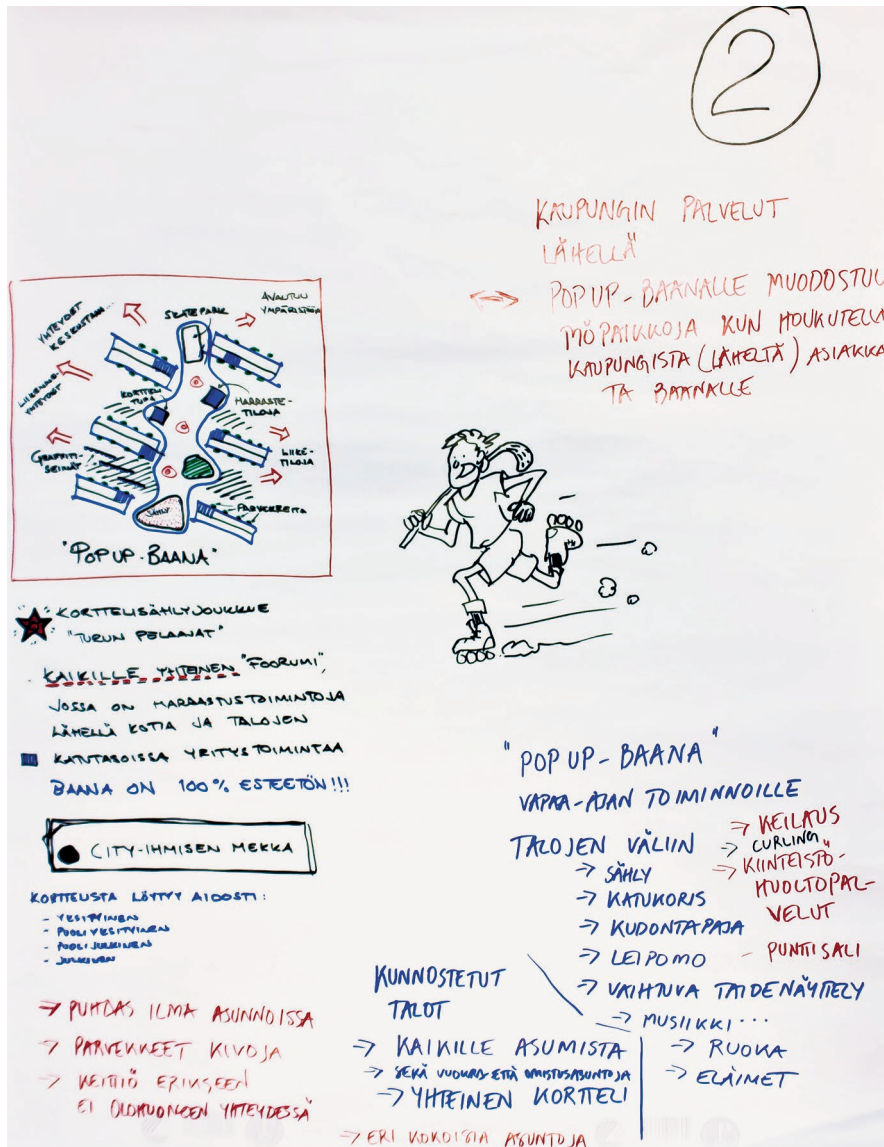 2
KAUPUNGIN PALVELUT
LÄHELLÄ
POP UP - BAANALLE MUODOSTUU
TYÖPAIKKOJA KUN HOUKUTELLA
KAUPUNGISTA (LÄHELTÄ) ASIAKKA
TA BAANALLE
YHTEYDET
KESKUSTAAN...
SKATEPARK
AVAUTUU
YMPÄRISTÖÖN
LIIKENNE-
YHTEYDET
KORTTELI
TUPA
HARRASTE-
TILOJA
GRAFFITI-
SEINÄT
LIIKE-
TILOJA
SÄHLY
PARVEKKEITA
"POP UP - BAANA"
KORTTELISÄHLYJOUKKUE
"TURUN PELAAJAT"
KAIKILLE YHTEINEN "FOORUMI",
JOSSA ON HARRASTUSTOIMINTOJA
LÄHELLÄ KOTIA JA TALOJEN
KATUTASOISSA YRITYSTOIMINTAA
BAANA ON 100% ESTEETÖN!!!
CITY-IHMISEN MEKKA
KORTTELISTA LÖYTYY AIDOSTI:
- YKSITYINEN
- PUOLIYKSITYINEN
- PUOLIJULKINEN
- JULKINEN
→ PUHDAS ILMA ASUNNOISSA
→ PARVEKKEET KIVOJA
→ KEITTIÖ ERIKSEEN
EI OLOHUONEEN YHTEYDESSÄ
"POP UP - BAANA"
VAPAA-AJAN TOIMINNOILLE
TALOJEN VÄLIIN
→ SÄHLY
→ KATUKORIS
→ KUDONTAPAJA
→ LEIPOMO
→ VAIHTUVA TAIDENÄYTTELY
→ MUSIIKKI...
→ RUOKA
→ ELÄIMET
→ KEILAUS
→ CURLING
→ KIINTEISTÖ-
HUOLTOPAL-
VELUT
- PUNTTISALI
KUNNOSTETUT
TALOT
→ KAIKILLE ASUMISTA
→ SEKÄ VUOKRA- ETTÄ OMISTUSASUNTOJA
→ YHTEINEN KORTTELI
→ ERI KOKOISIA ASUNTOJA